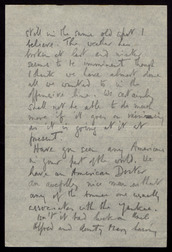 still in the same old spot I
believe. The weather has
broken at last and
seems to be imminent though
I think we have almost done
all we wanted to in the
offensive line. We certainly
shall not be able to do much
more if it goes on
as it is going at it at
present
Have you seen any Americans
in your part of the world. We
have an American Doctor
an awfully nice man so that
any of the
associates with the Yankee
isn't it bad luck on
Alfred and Aunty Mary having